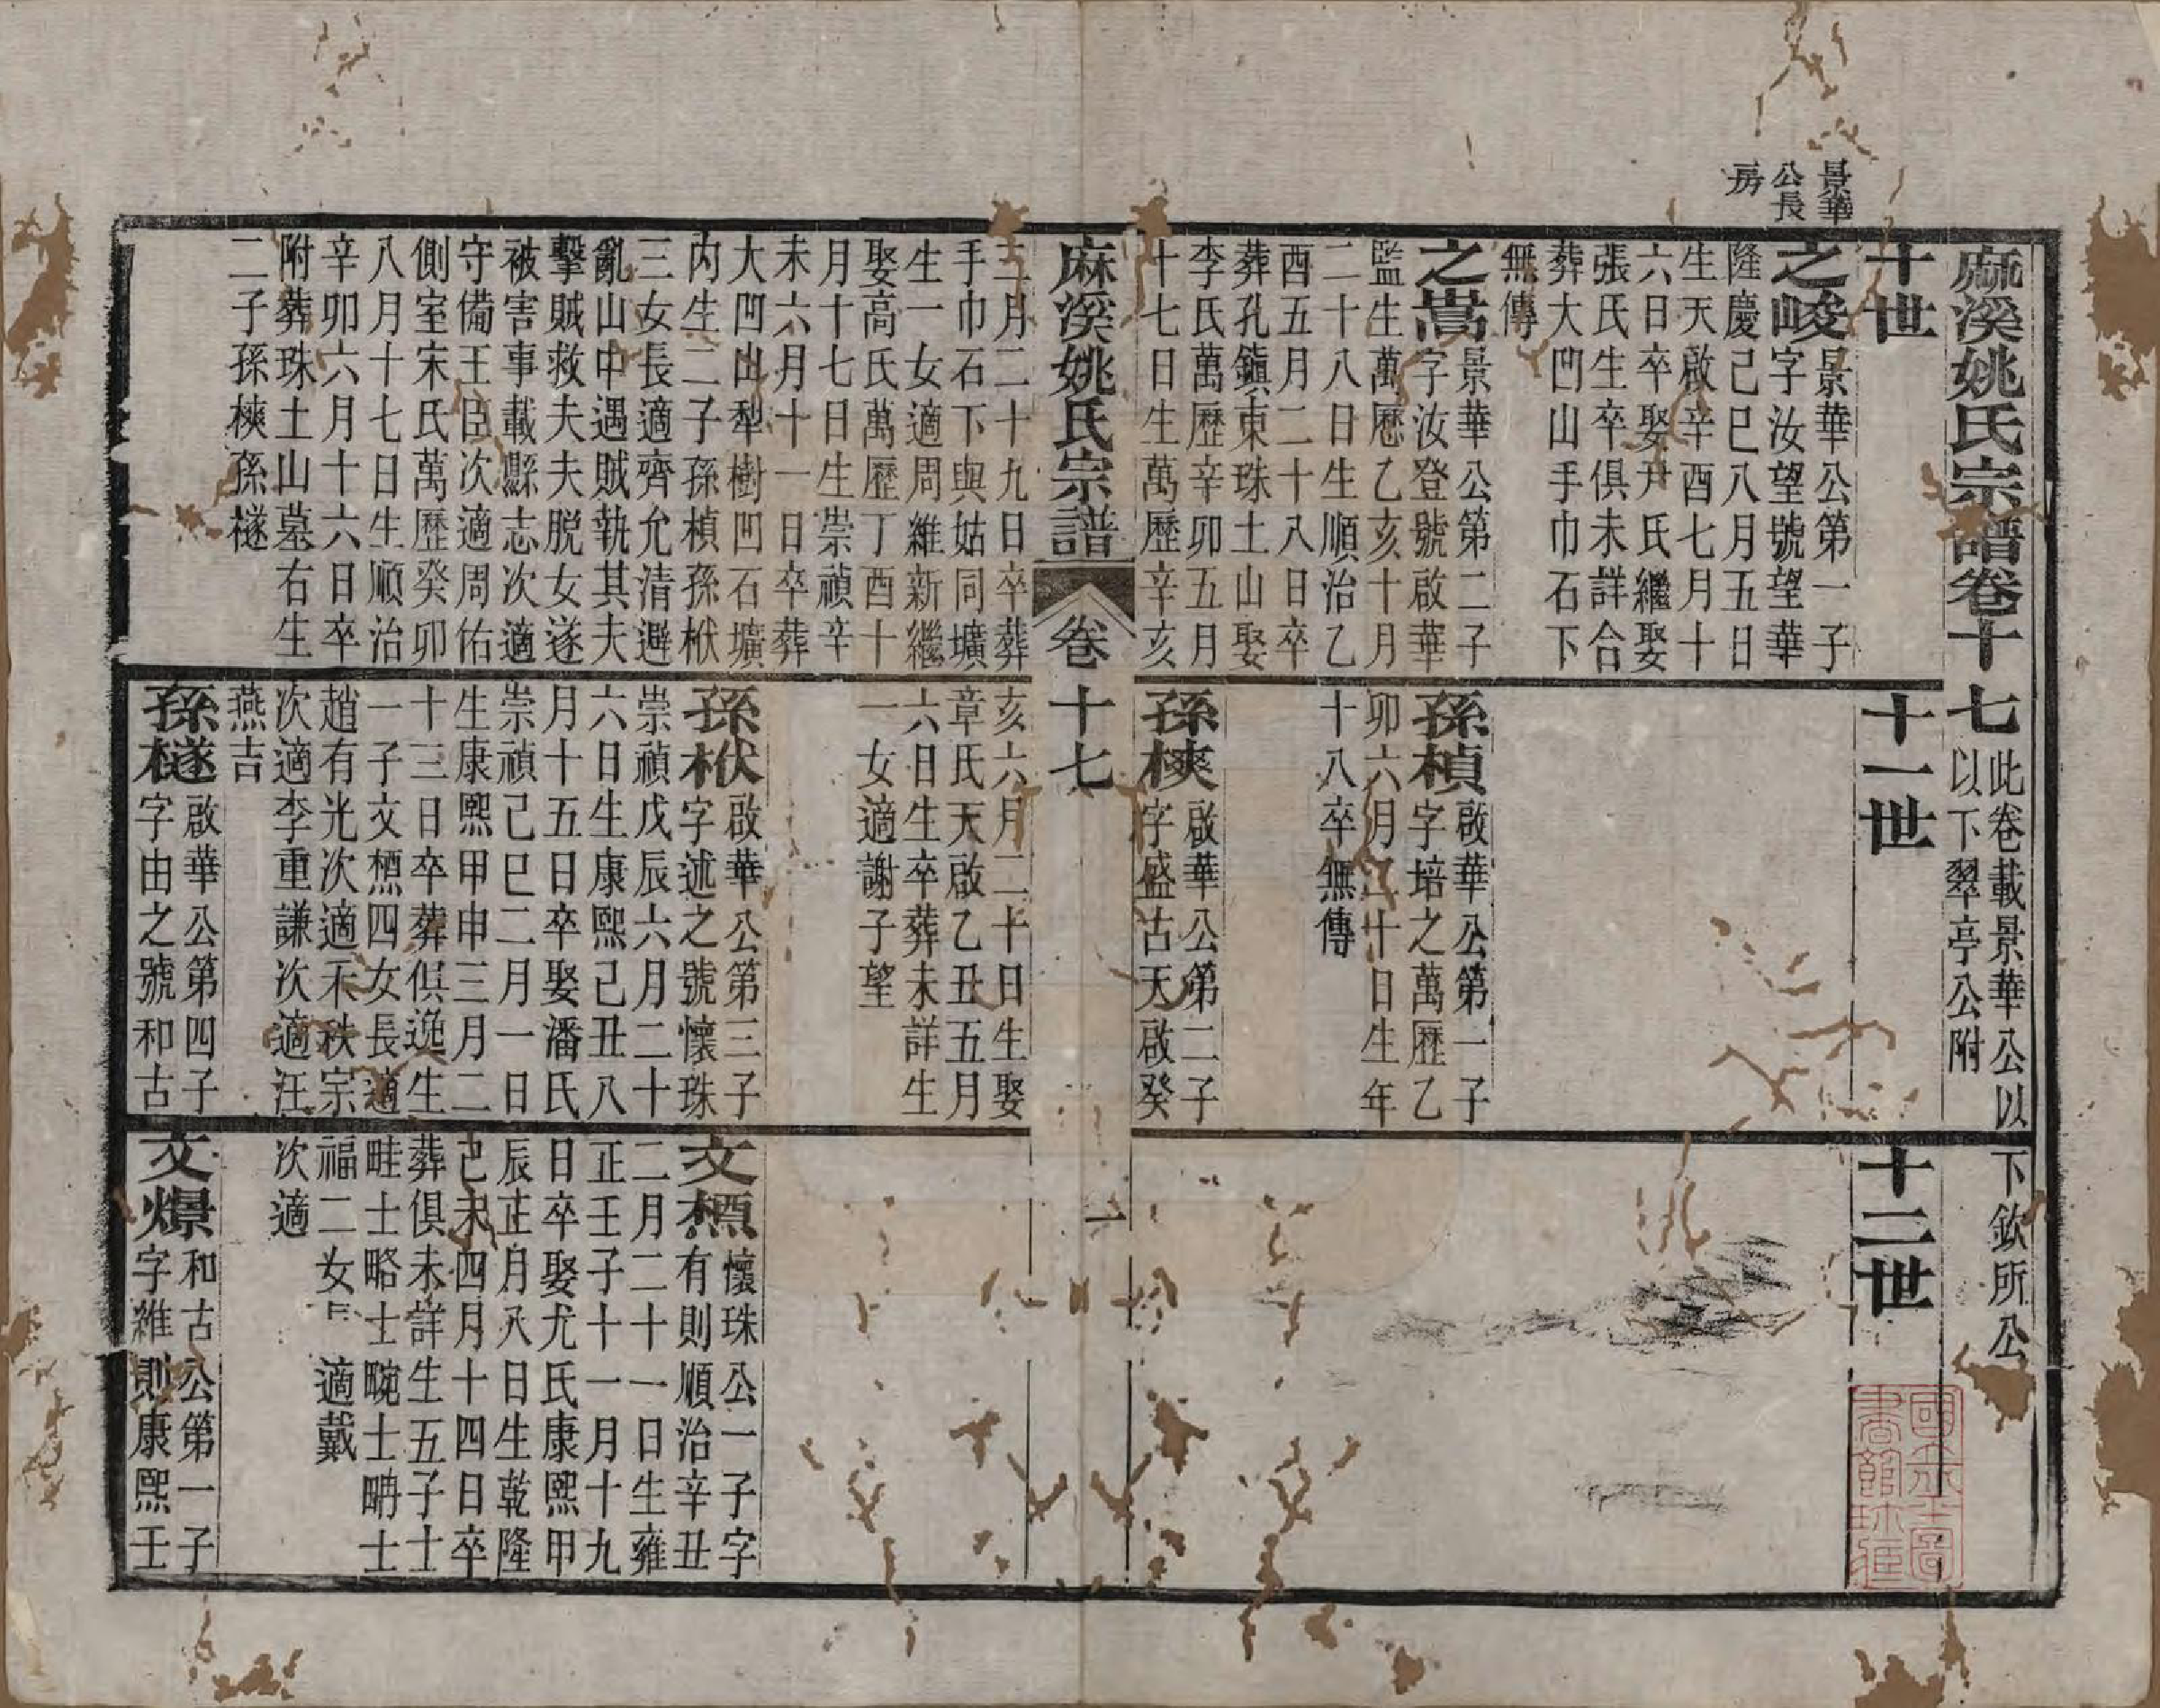 景華
公長
房
麻溪姚氏宗譜卷十七
此卷載景華公以下欽所公
以下翠亭公附
十世
之峻
景華公第一子
字汝望號望華
隆慶己巳八月五日
生天啟辛酉七月十
六日卒娶尹氏繼娶
張氏生卒俱未詳合
葬大凹山手巾石下
無傳
之嵩
景華公第二子
字汝登號啟華
監生萬歷乙亥十月
二十八日生順治乙
酉五月二十八日卒
葬孔鎭東珠土山娶
李氏萬歷辛卯五月
十七日生萬歷辛亥
麻溪姚氏宗譜
卷十七
一
三月二十九日卒葬
手巾石下與姑同壙
生一女適周維新繼
娶高氏萬歷丁酉十
月十七日生崇禎辛
未六月十一日卒葬
大凹山犁樹凹石壙
內生二子孫楨孫栿
三女長適齊允清避
亂山中遇賊執其夫
擊賊救夫夫脱女遂
被害事載縣志次適
守備王臣次適周佑
側室宋氏萬歷癸卯
八月十七日生順治
辛卯六月十六日卒
附葬珠土山墓右生
二子孫樉孫檖
十一世
孫楨
啟華公第一子
字培之萬歷乙
卯六月二十日生年
十八卒無傳
孫樉
啟華公第二子
字盛古天啟癸
亥六月二十日生娶
章氏天啟乙丑五月
六日生卒葬未詳生
一女適謝子望
孫栿
啟華公第三子
字述之號懷珠
崇禎戊辰六月二十
六日生康熙己丑八
月十五日卒娶潘氏
崇禎己巳二月一日
生康熙甲申三月二
十三日卒葬俱逸生
一子文標四女長適
趙有光次適禾秩宗
次適李重謙次適汪
燕吉
孫檖
啟華公第四子
字由之號和古
十二世
文標
懷珠公一子字
有則順治辛丑
二月二十一日生雍
正壬子十一月十九
日卒娶尤氏康熙甲
辰正月八日生乾隆
己未四月十四日卒
葬俱未詳生五子士
畦士略士畹士疇士
福二女長適戴
次適
文爆
和古公第一子
字維則康熙壬